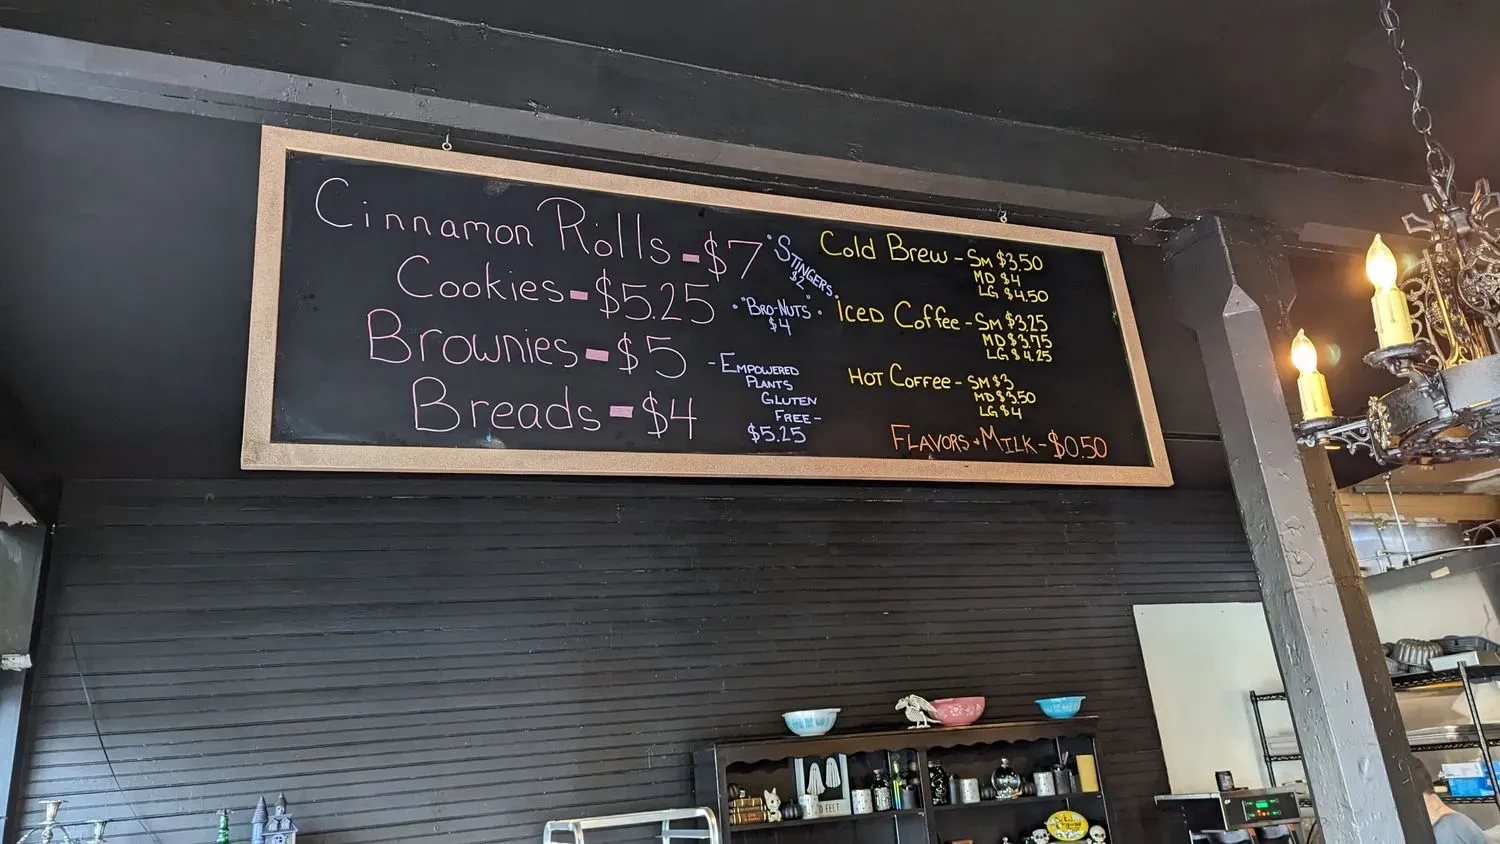 Cinnamon Rolls - $7
Cookies - $5.25
Brownies - $5
Breads - $4
• STINGERS •
$2
• "BRO-NUTS" •
$4
- EMPOWERED
PLANTS
GLUTEN
FREE -
$5.25
Cold Brew - SM $3.50
MD $4
LG $4.50
ICED Coffee - SM $3.25
MD $3.75
LG $4.25
HOT COFFEE - SM $3
MD $3.50
LG $4
FLAVORS + MILK - $0.50
FEET